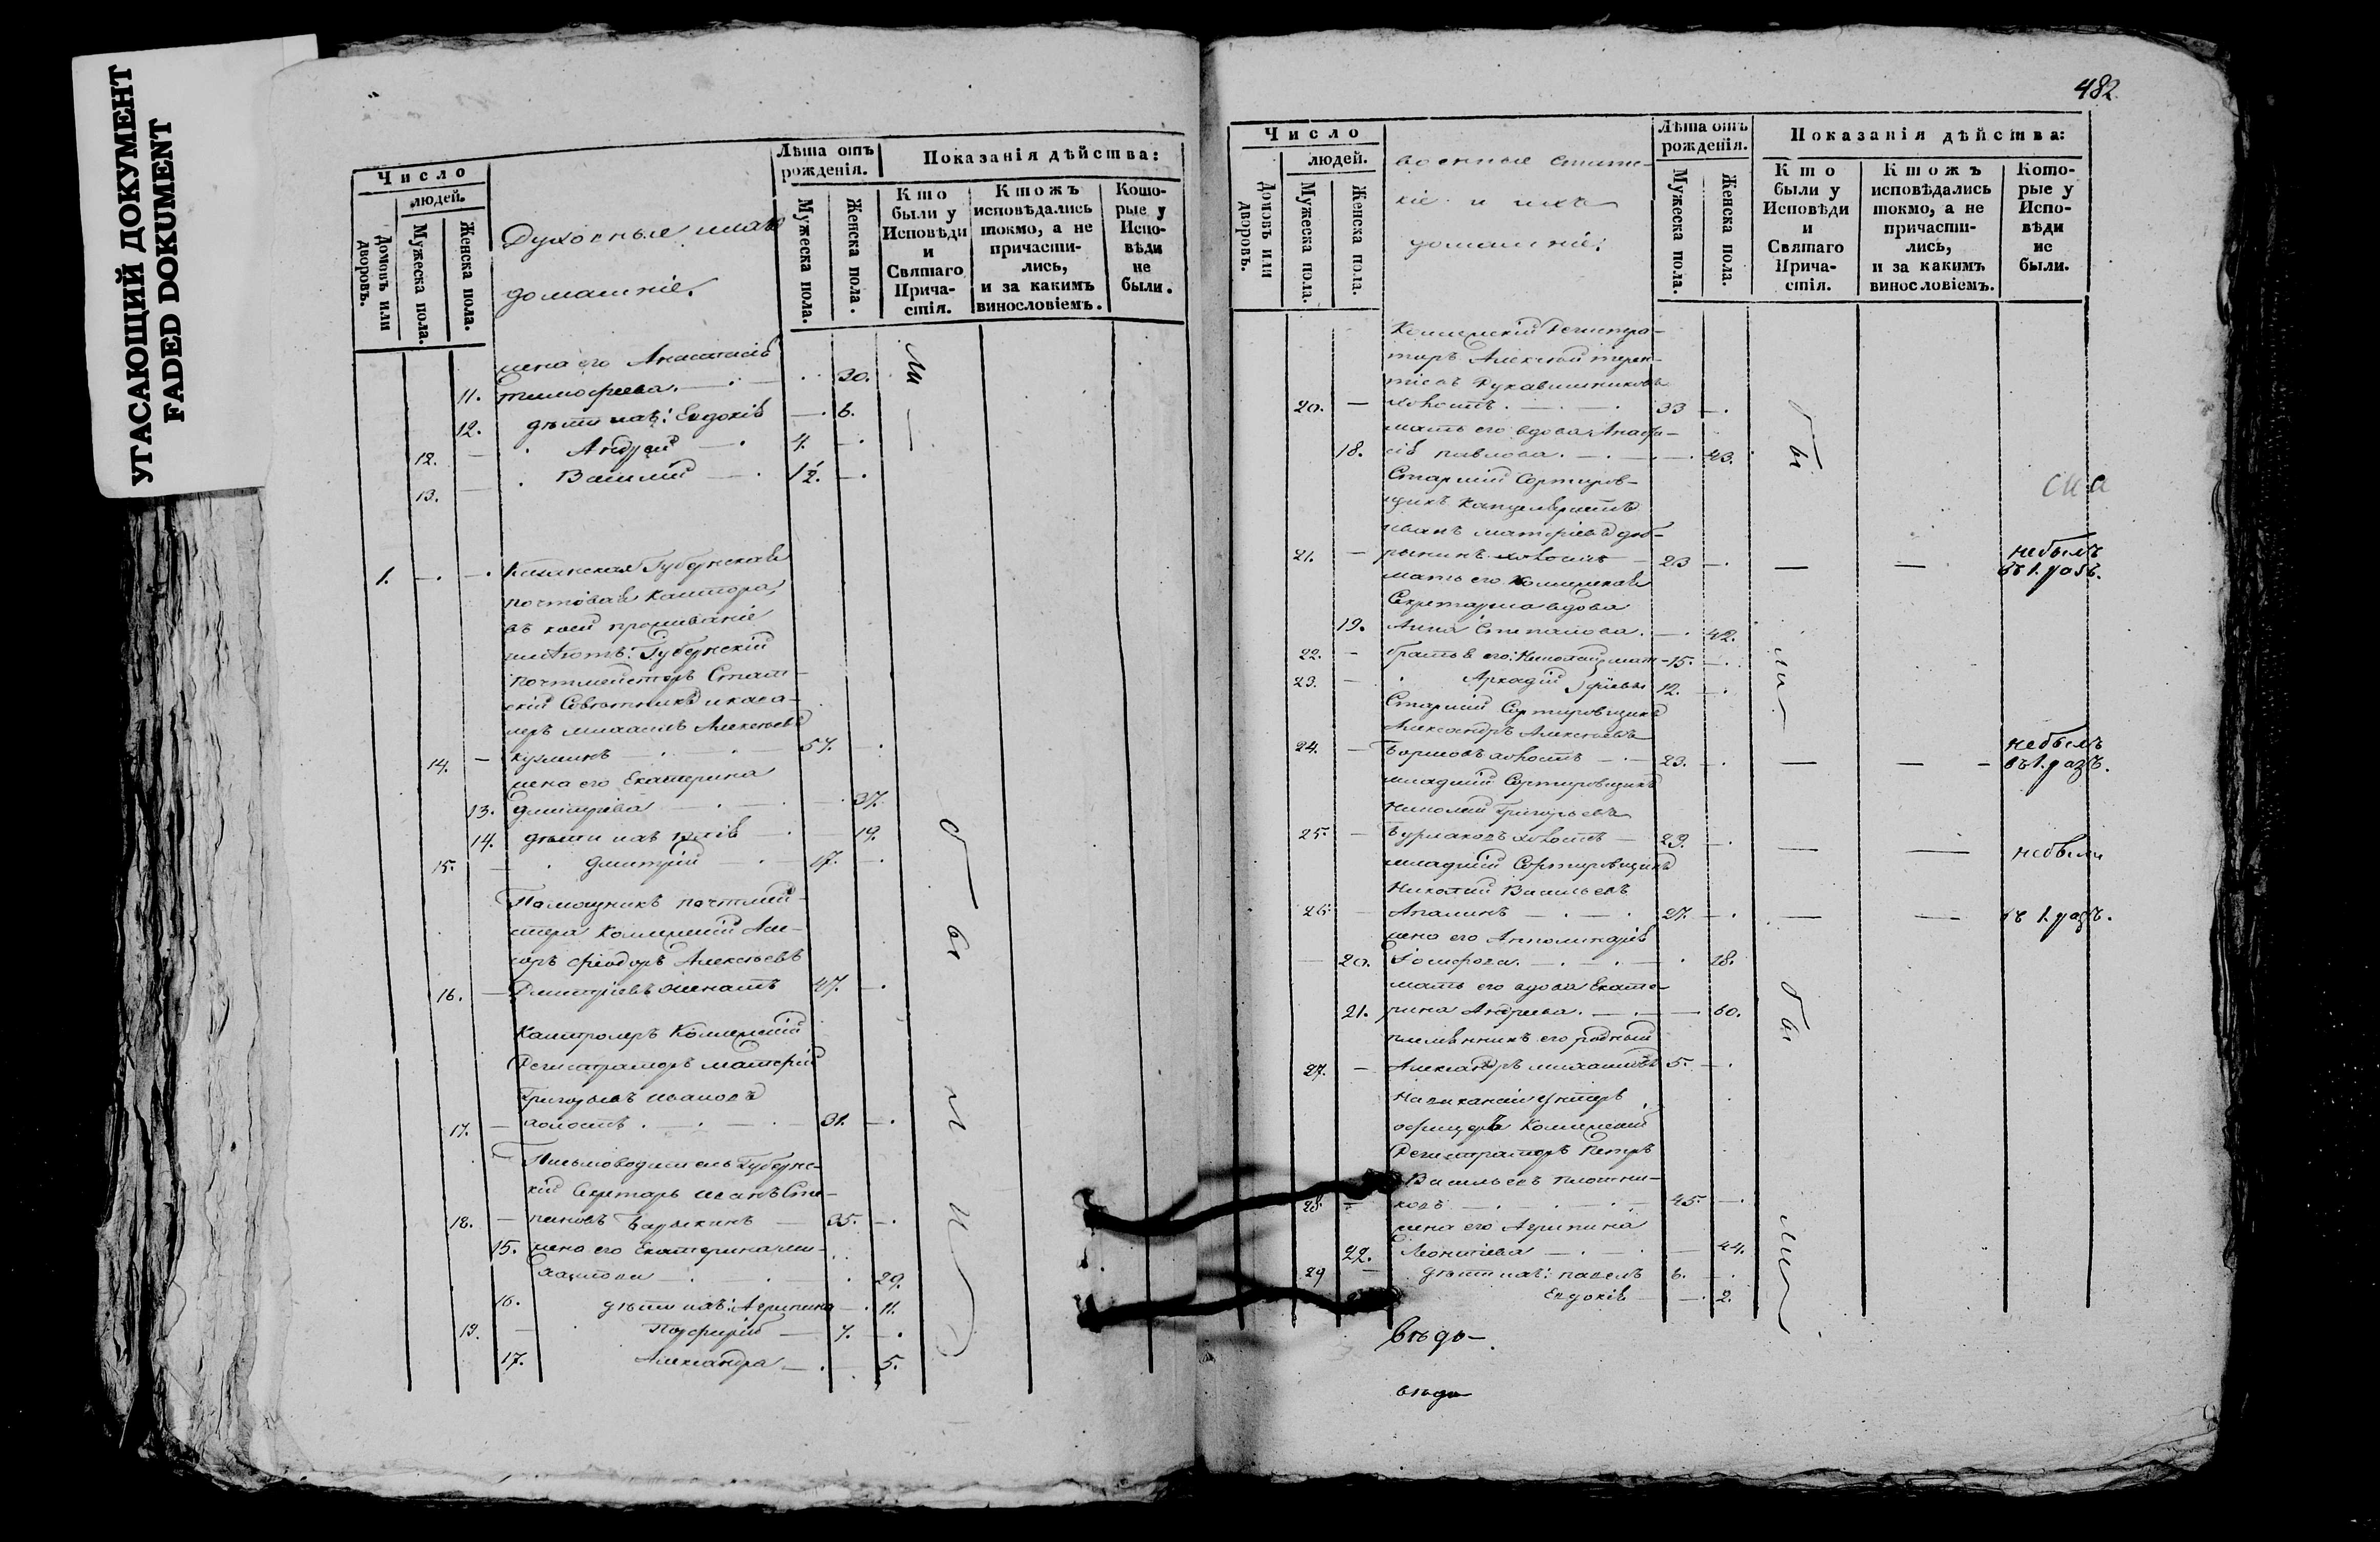 УГАСАЮЩИЙ ДОКУМЕНТ
FADED DOKUMENT
Число
людей.
Домовъ или дворовъ.
Мужеска пола.
Женска пола.
Духовные и ихъ
домашніе.
Лѣта отъ рожденія.
Мужеска пола.
Женска пола.
Показанія дѣйства:
Кто были у Исповѣди и Святаго Причастія.
Ктожъ исповѣдались токмо, а не причастились, и за какимъ винословіемъ.
Которые у Исповѣди не были.
жена его Анастасія
11. тимофеева. 30.
12. дѣти ихъ: Евдокія 6.
12. Андрей 4.
13. Василій 1/2.
1. Казанская Губернская
почтовая Кантора,
въ коей проживаніе
имѣютъ: Губернскій
почтмейстеръ Стат-
скій Совѣтникъ и кава-
леръ михаилъ Алексѣевъ
14. кузминъ 57.
жена его Екатерина
13. дмитріева 37.
14. дѣти ихъ 19.
15. дмитрій 17.
Помощникъ почтмей-
стера Коллежскій Асе-
соръ Феодоръ Алексѣевъ
16. Дмитріевъ женатъ 47.
Кантролеръ Коллежскій
Регистраторъ матфей
Григорьевъ ивановъ
17. холостъ 31.
Письмоводитель Губернс-
кій Секретарь иванъ Сте-
18. пановъ Барыкинъ 35.
15. жена его Екатерина ми-
хайлова 29.
16. дѣти ихъ: Агрипина 11.
19. Порфирій 7.
17. Александра 5.
были
482.
Число
людей.
Домовъ или дворовъ.
Мужеска пола.
Женска пола.
военные статс-
кіе и ихъ
домашніе:
Лѣта отъ рожденія.
Мужеска пола.
Женска пола.
Показанія дѣйства:
Кто были у Исповѣди и Святаго Причастія.
Ктожъ исповѣдались токмо, а не причастились, и за какимъ винословіемъ.
Которые у Исповѣди не были.
Коллежскій Регистра-
торъ Алексѣй терен-
тіевъ Рукавишниковъ
20. холостъ. 33
мать его вдова Анаста-
18. сія павлова. 43.
Старшій Сортиров-
щикъ Канцеляристъ
иванъ матфіевъ доб-
21. рынинъ холостъ 23 небылъ
въ 1. разъ.
мать его Коллежская
Секретарша вдова
19. Анна Степанова. 42.
22. братья его: Николай мат- 15.
23. Аркадій фіевы 12.
Старшій Сортировщикъ
Александръ Алексѣевъ
24. Борисовъ холостъ 23. небылъ
въ 1. разъ.
младшій Сортировщикъ
Николай Григорьевъ
25. Бурлаковъ холостъ 23. небыли
младшій Сортировщикъ
Николай Васильевъ
26. Апалинъ 27. въ 1. разъ.
жена его Апполинарія
20. 18.
мать его вдова Екате-
21. рина Андреева. 60.
племянникъ его родный
27. Александръ михайловъ 5.
унтеръ
офицеръ Коллежскій
Регистраторъ Петръ
Васильевъ плотни-
28. ковъ 45.
жена его Агрипина
22. Леонтіева 44.
29 дѣти ихъ: павелъ 6.
Евдокія 2.
были
вѣдо-
вѣдо